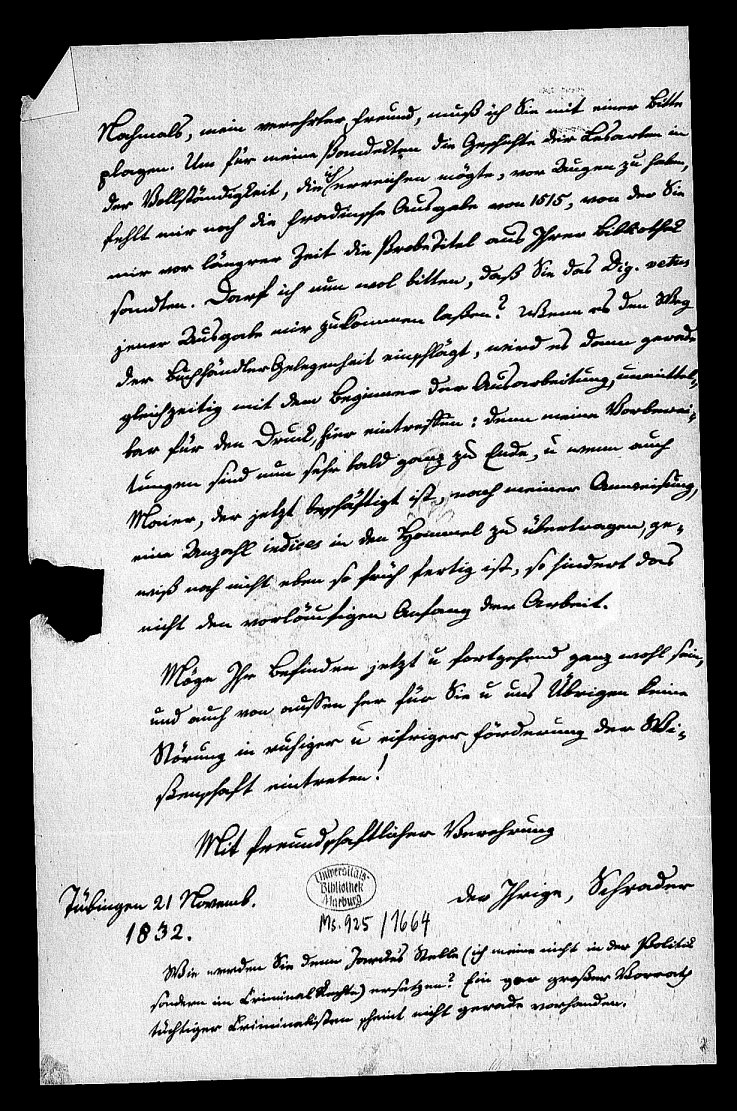 Nochmals, mein verehrter Freund, muß ich Sie mit einer Bitte
plagen. Um für meine Pandekten die Geschichte der Lesarten in
der Vollständigkeit, die ich erreichen mögte, vor Augen zu haben,
fehlt mir noch die Fradinsche Ausgabe von 1515, von der Sie
mir vor längrer Zeit die Probetitel aus Ihrer Bibliothek
sandten. Darf ich nun wol bitten, daß Sie das Dig. vetus
jener Ausgabe mir zukommen laßen? Wenn es den Weg
der Buchhändler Gelegenheit einschlägt, wird es dann gerade
gleichzeitig mit dem Beginnen der Ausarbeitung, unmittel-
bar für den Druck, hier eintreffen: denn meine Vorberei-
tungen sind nun sehr bald ganz zu Ende, u wenn auch
Maier, der jetzt beschäftigt ist, nach meiner Anweisung,
eine Anzahl indices in den Hommel zu übertragen, ge-
wiß noch nicht eben so früh fertig ist, so hindert das
nicht den vorläufigen Anfang der Arbeit.
Möge Ihr Befinden jetzt u fortgehend ganz wohl sein,
und auch von aussen her für Sie u uns Übrigen keine
Störung in ruhiger u eifriger Förderung der Wi-
ßenschaft eintreten!
Mit freundschaftlicher Verehrung
der Ihrige, Schrader
Tübingen 21 Novemb.
1832.
Universitäts-
Bibliothek
Marburg
Ms. 925/1664
Wie werden Sie denn Jarckes Stelle (ich meine nicht in der Politik
sondern im Criminal Rechte) ersetzen? Ein gar großer Vorrath
tüchtiger Criminalisten scheint nicht gerade vorhanden.